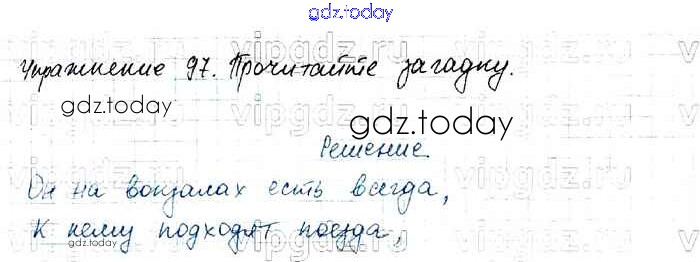 gdz.today
Упражнение 97. Прочитайте загадку.
gdz.today
gdz.today
Решение.
Он на вокзалах есть всегда,
К нему подходят поезда,
gdz.today